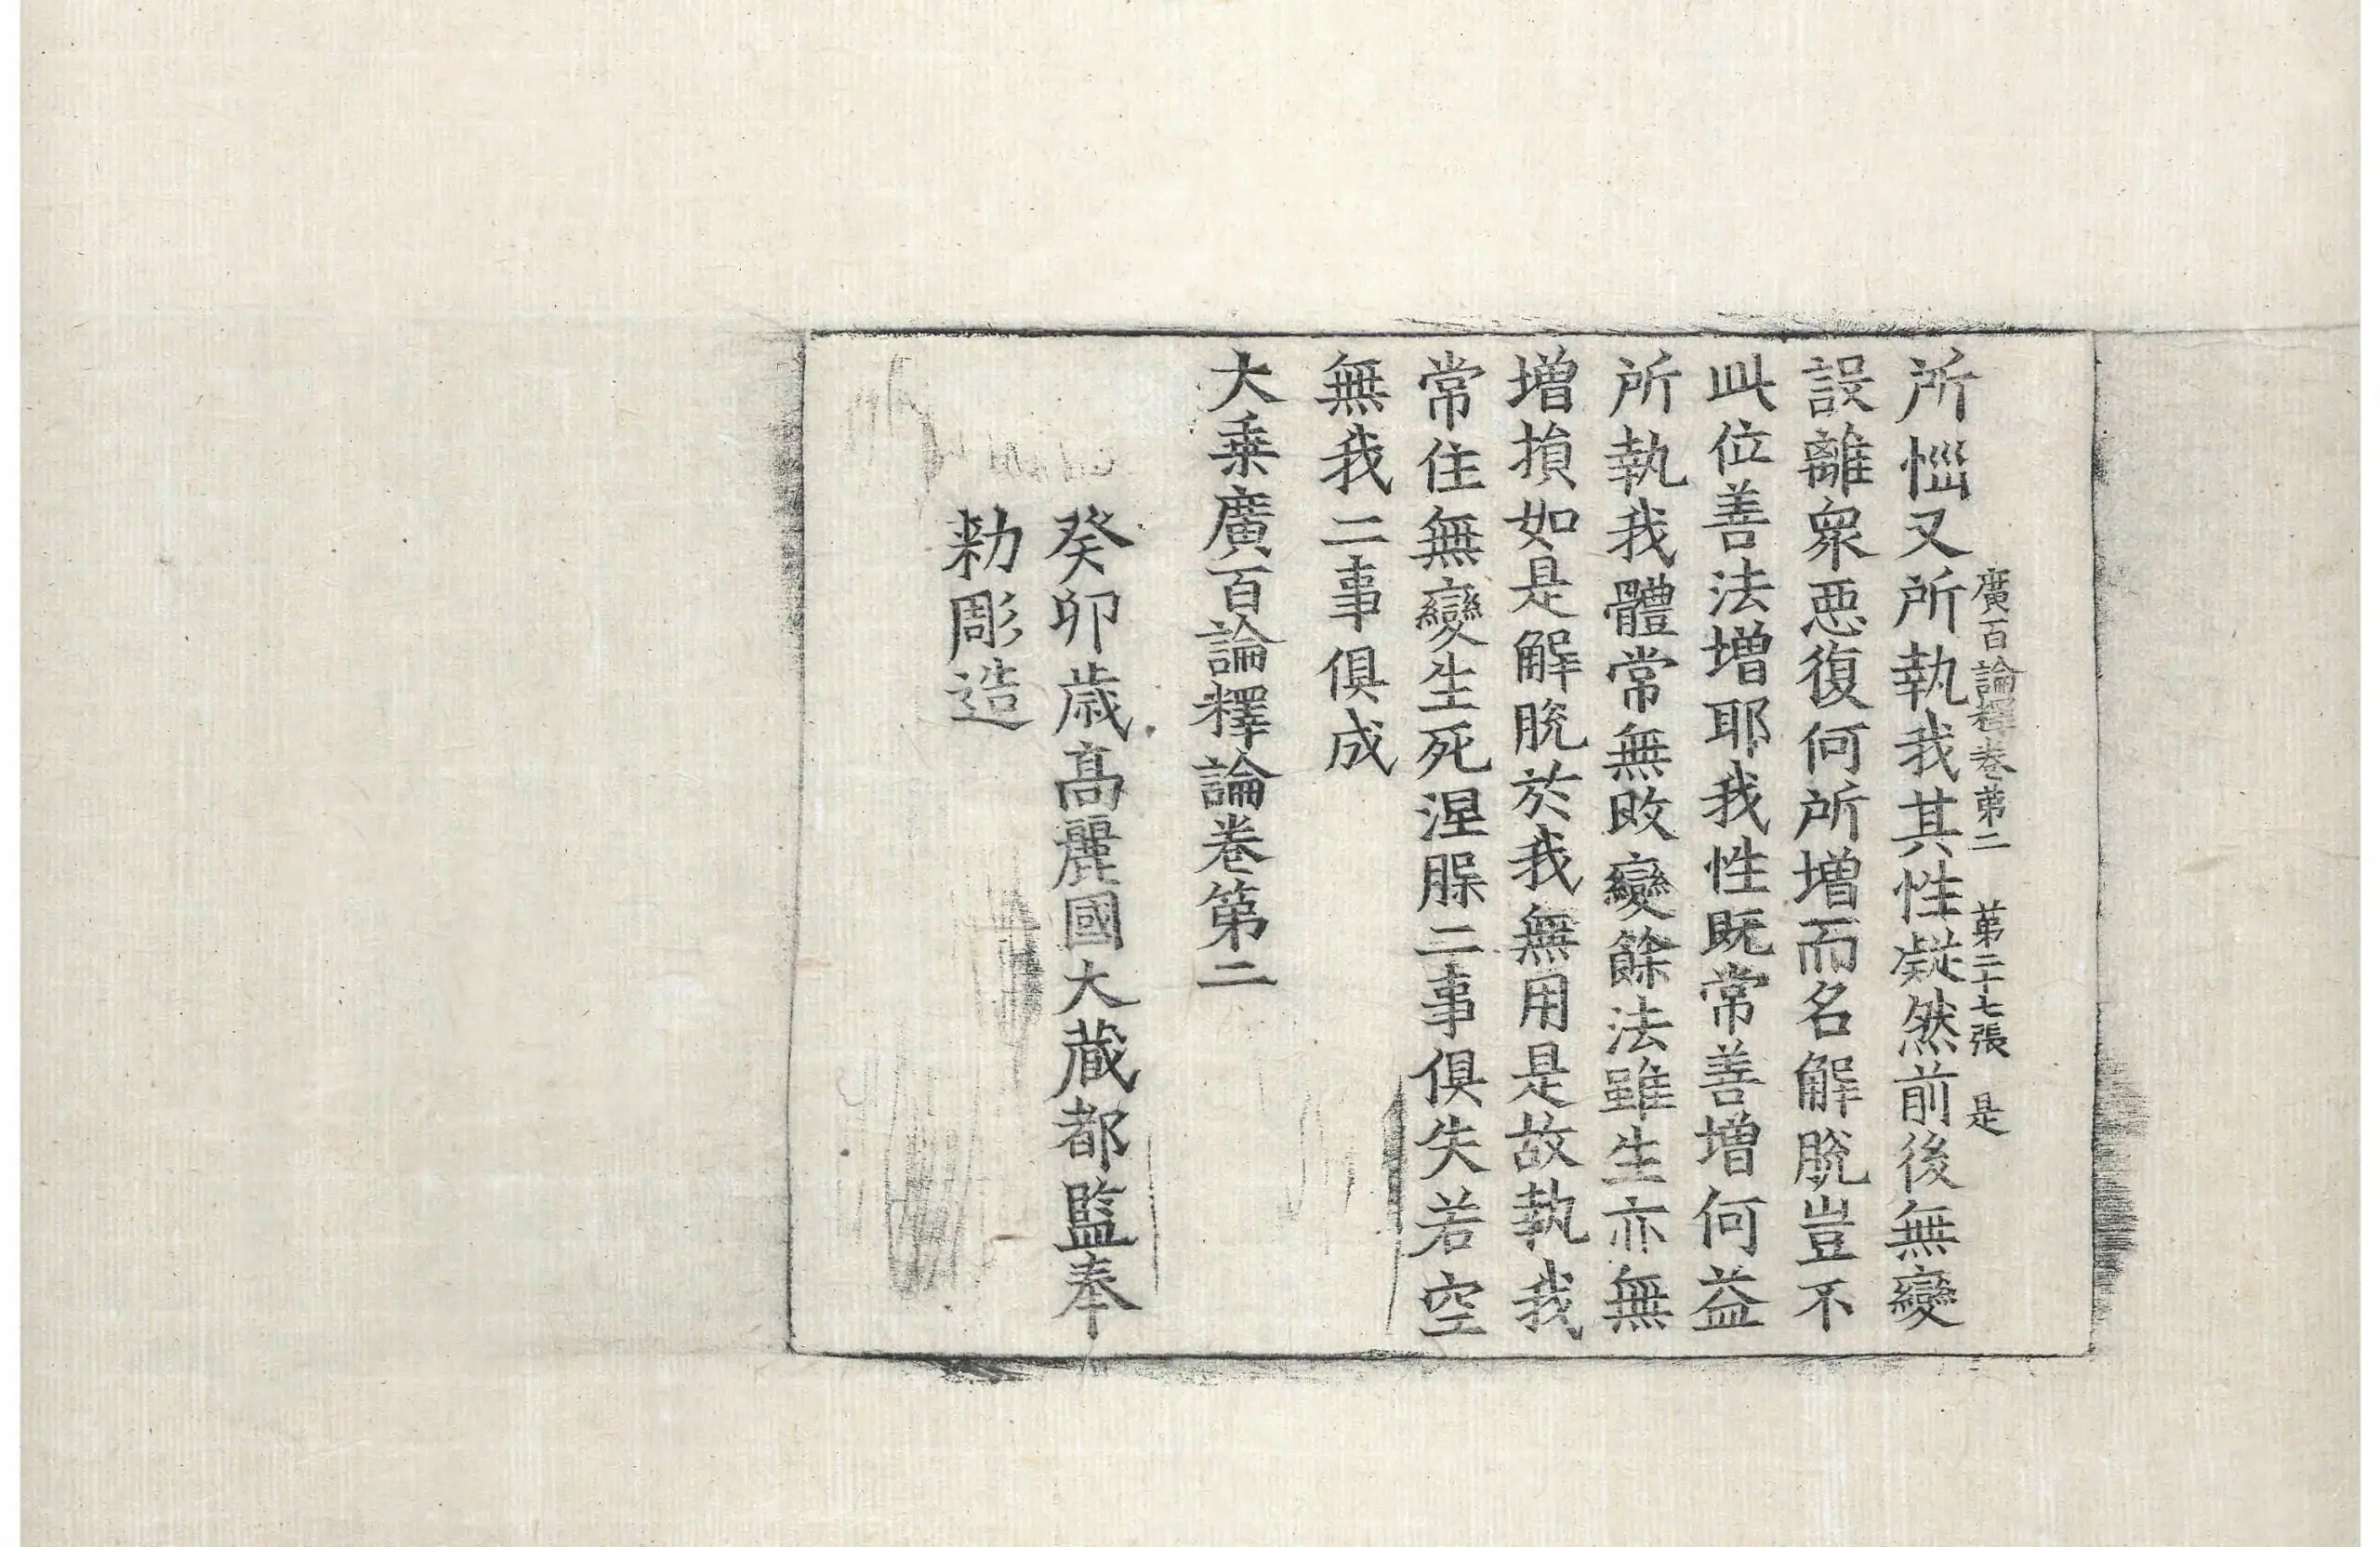 廣百論釋卷苐二　苐二十七張　是
所惱又所執我其性凝然前後無變
設離衆惡復何所增而名解脫豈不
此位善法增耶我性既常善增何益
所執我體常無敗變餘法雖生亦無
增損如是解脫於我無用是故執我
常住無變生死涅脲二事俱失若空
無我二事俱成
大乗廣百論釋論卷第二
癸卯歲高麗國大藏都監奉
勑彫造